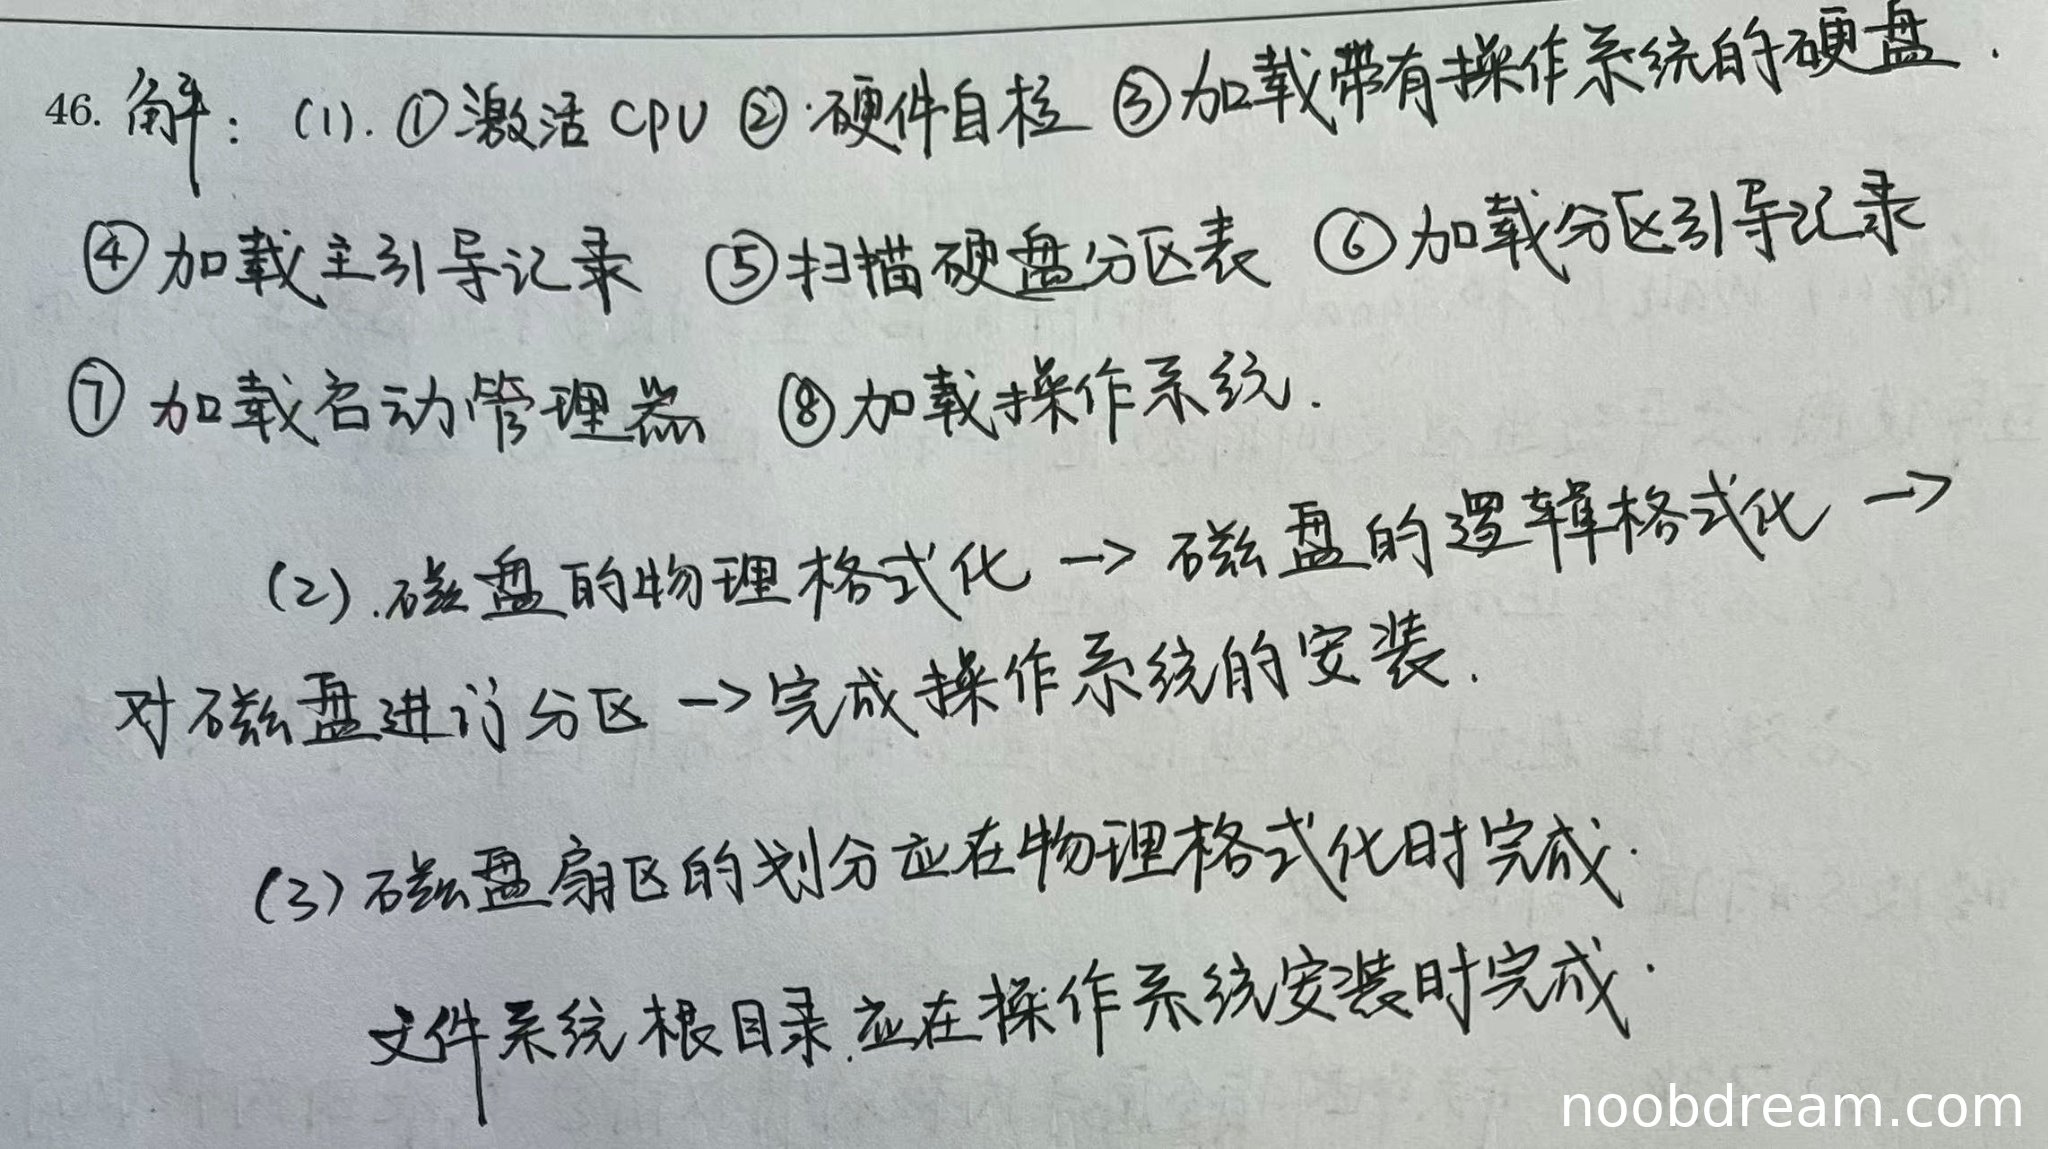 46. 解：(1). ①激活CPU ②.硬件自检 ③加载带有操作系统的硬盘.
④加载主引导记录 ⑤扫描硬盘分区表 ⑥加载分区引导记录
⑦加载启动管理器 ⑧加载操作系统.
(2).磁盘的物理格式化→磁盘的逻辑格式化→
对磁盘进行分区→完成操作系统的安装.
(3)磁盘扇区的划分应在物理格式化时完成.
文件系统根目录.应在操作系统安装时完成.
noobdream.com